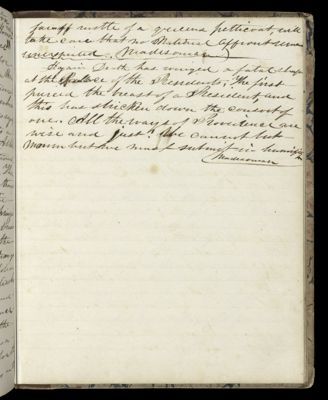 far off rustle of a queens petticoat, will
take care that no National affront
unrequited. Madisonian
Again Death has winged a fatal shaft
at the palace of the President. The first
pierced the breast of a President, and
this has stricken down the consort of
one. All the ways of Providence are
wise and just. We cannot but
mourn but we must submit in humility
Madisonian